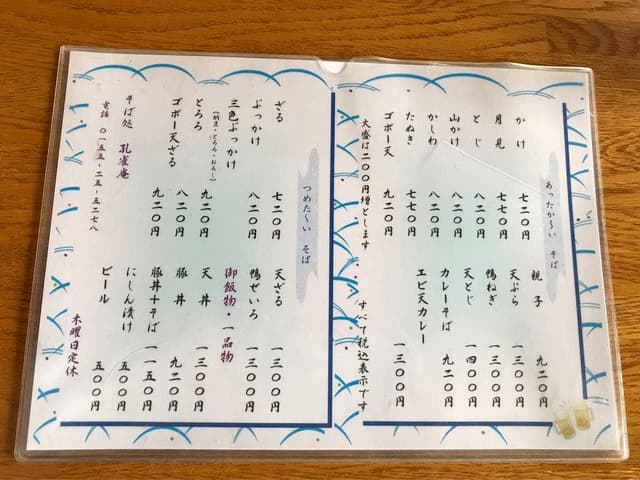 あったか〜い そば
かけ 七二〇円
月見 七七〇円
とじ 八二〇円
山かけ 八二〇円
かしわ 八二〇円
たぬき 七七〇円
ゴボー天 九二〇円
大盛は二〇〇円増とします
親子 九二〇円
天ぷら 一三〇〇円
鴨ねぎ 一三〇〇円
天とじ 一四〇〇円
カレーそば 九二〇円
エビ天カレー 一三〇〇円
すべて税込表示です
つめた〜い そば
ざる 七二〇円
ぶっかけ 八二〇円
三色ぶっかけ 九二〇円
(納豆・とろろ・おろし)
とろろ 八二〇円
ゴボー天ざる 九二〇円
天ざる 一三〇〇円
鴨せいろ 一三〇〇円
御飯物・一品物
天丼 一三〇〇円
豚丼 九二〇円
豚丼+そば 一一五〇円
にしん漬け 五〇〇円
ビール 五〇〇円
そば処 孔雀庵
電話 〇一五五-二五-五二七八
木曜日定休